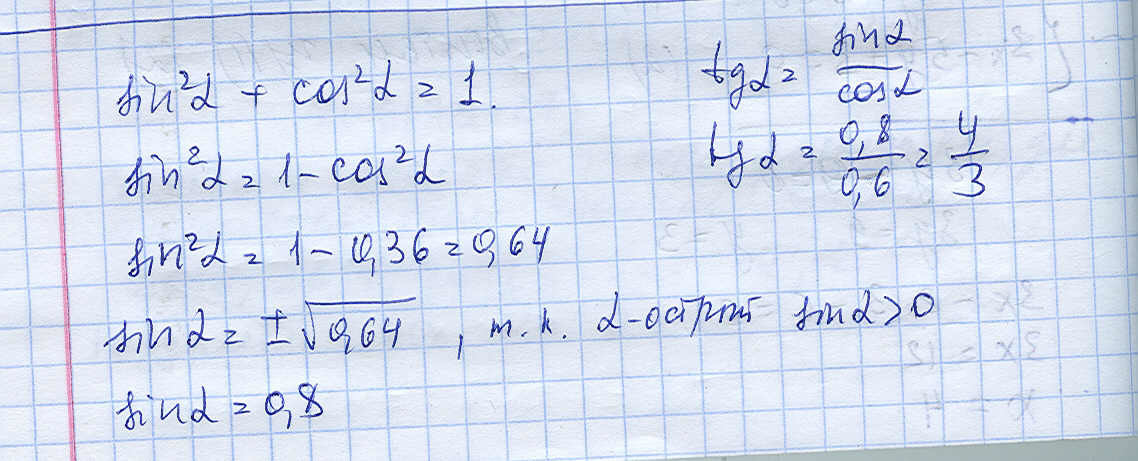 sin²α + cos²α = 1.
sin²α = 1 - cos²α
sin²α = 1 - 0,36 = 0,64
sin α = ±√0,64 , т.к. α-острый sin α > 0
sin α = 0,8
tg α = sin α / cos α
tg α = 0,8 / 0,6 = 4 / 3